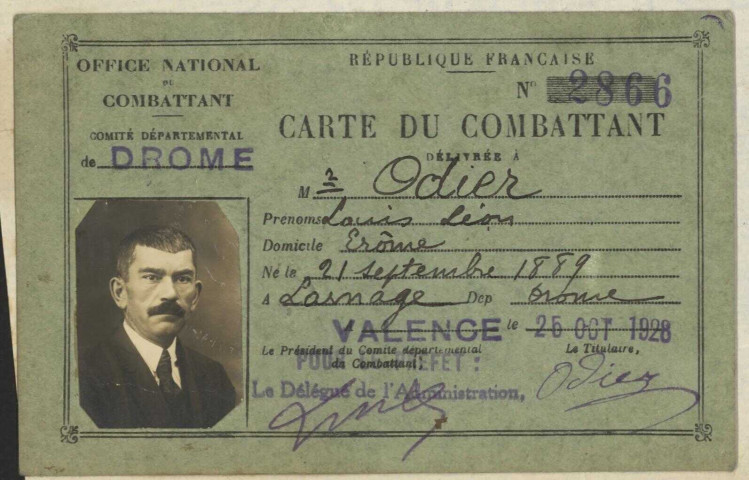 OFFICE NATIONAL
DU
COMBATTANT
COMITÉ DÉPARTEMENTAL
de DROME
RÉPUBLIQUE FRANÇAISE
N° 2866
CARTE DU COMBATTANT
DÉLIVRÉE A
M r Odier
Prenoms Louis Léon
Domicile Erôme
Né le 21 septembre 1889
A Larnage Dep Drome
VALENCE le 25 OCT 1928
Le Président du Comite departemental
du Combattant,
POUR LE PREFET :
Le Délégué de l'Administration,
Le Titulaire,
Odier